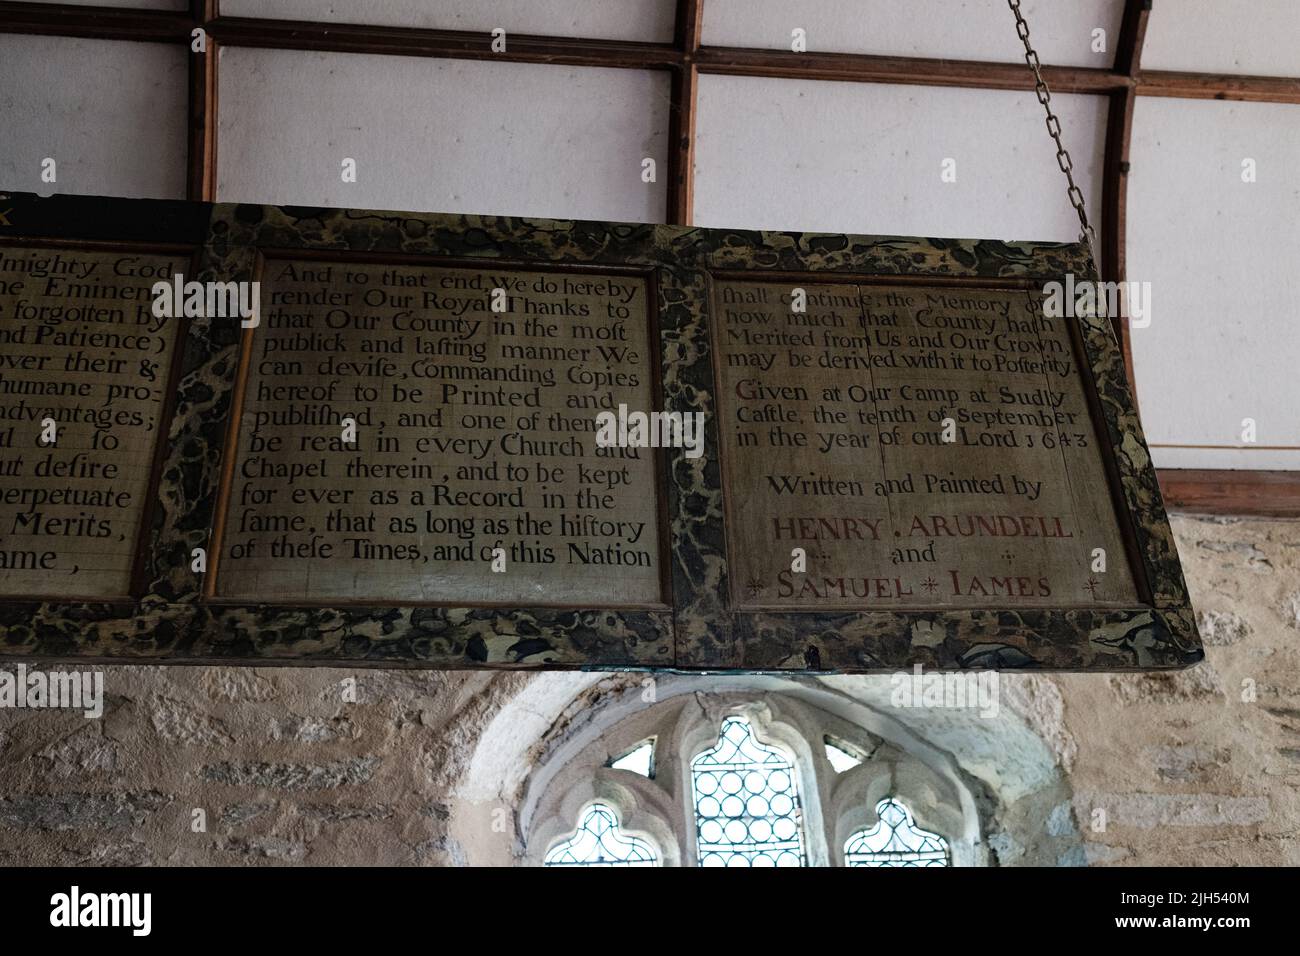 x
lmighty God
he Eminen
e forgotten by
nd Patience)
over their &
humane pro-
dvantages;
ul of ſo
ut deſire
erpetuate
Merits,
ame,
And to that end, We do hereby
render Our Royal Thanks to
that Our County in the moſt
publick and laſting manner We
can deviſe, Commanding Copies
hereof to be Printed and
publiſhed, and one of them to
be read in every Church and
Chapel therein, and to be kept
for ever as a Record in the
ſame, that as long as the hiſtory
of theſe Times, and of this Nation
ſhall continue, the Memory of
how much that County hath
Merited from Us and Our Crown,
may be derived with it to Poſterity.
Given at Our Camp at Sudly
Caſtle, the tenth of September
in the year of our Lord 1643
Written and Painted by
HENRY . ARUNDELL
and
SAMUEL * IAMES
alamy
Image ID: 2JH540M
www.alamy.com